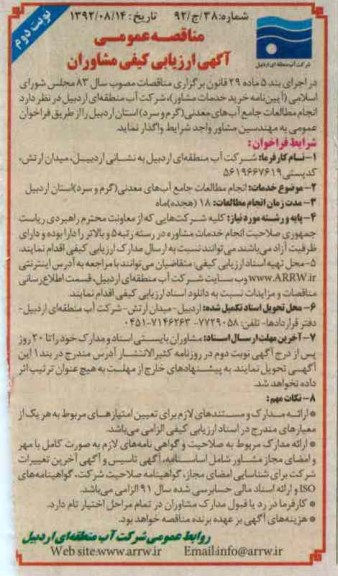 شماره: ۳۸/ج/۹۲ تاریخ: ۱۳۹۲/۰۸/۱۴
نوبت دوم
مناقصه عمومی
آگهی ارزیابی کیفی مشاوران
شرکت آب منطقه ای اردبیل
در اجرای بند ۵ ماده ۲۹ قانون برگزاری مناقصات مصوب سال ۸۳ مجلس شورای
اسلامی (آیین نامه خرید خدمات مشاور)، شرکت آب منطقه‌ای اردبیل در نظر دارد
انجام مطالعات جامع آب‌های معدنی (گرم و سرد) استان اردبیل را از طریق فراخوان
عمومی به مهندسین مشاور واجد شرایط واگذار نماید.
شرایط فراخوان:
۱- نام کارفرما: شرکت آب منطقه‌ای اردبیل به نشانی اردبیل، میدان ارتش،
کدپستی ۵۶۱۹۶۶۷۶۱۹
۲- موضوع خدمات: انجام مطالعات جامع آب‌های معدنی (گرم و سرد) استان اردبیل
۳- مدت زمان انجام مطالعات: ۱۸ (هجده) ماه
۴- پایه و رشته مورد نیاز: کلیه شرکت‌هایی که از معاونت محترم راهبردی ریاست
جمهوری صلاحیت انجام خدمات مشاوره در رسته رتبه ۵ و بالاتر را دارا بوده و دارای
ظرفیت آزاد می‌باشند می‌توانند نسبت به ارسال مدارک ارزیابی کیفی اقدام نمایند.
۵- محل تهیه اسناد ارزیابی کیفی: متقاضیان می‌توانند با مراجعه به آدرس اینترنتی
www.ARRW.ir وب سایت شرکت آب منطقه‌ای اردبیل، قسمت اطلاع رسانی
مناقصات و مزایدات نسبت به دانلود اسناد ارزیابی کیفی اقدام نمایند.
۶- محل تحویل اسناد تکمیل شده: اردبیل- میدان ارتش- شرکت آب منطقه‌ای اردبیل-
دفتر قراردادها- تلفن: ۷۷۲۹۰۵۸- ۷۱۴۶۲۶۳-۰۴۵۱
۷- آخرین مهلت ارسال اسناد: مشاوران بایستی اسناد و مدارک خود را تا ۲۰ روز
پس از درج آگهی نوبت دوم در روزنامه کثیرالانتشار آدرس مندرج در بند ۱ این
آگهی تحویل نمایند. به پیشنهادهای خارج از مهلت به هیچ عنوان ترتیب اثر
داده نخواهد شد.
۸- نکات مهم:
* ارائه مدارک و مستندهای لازم برای تعیین امتیازهای مربوط به هر یک از
معیارهای مندرج در اسناد ارزیابی کیفی الزامی می‌باشد.
* ارائه مدارک مربوط به صلاحیت و گواهی نامه‌های لازم به صورت کامل با مهر
و امضای مجاز مشاور شامل اساسنامه، آگهی تاسیس و آگهی آخرین تغییرات
شرکت برای شناسایی امضای مجاز، گواهینامه صلاحیت شرکت، گواهینامه‌های
ISO و ارائه اسناد مالی حسابرسی شده سال ۹۱ الزامی می‌باشد.
* کارفرما در رد یا قبول مدارک مشاوران در تمام مراحل اختیار تام دارد.
* هزینه‌های آگهی بر عهده برنده مناقصه خواهد بود.
روابط عمومی شرکت آب منطقه‌ای اردبیل
Web site:www.arrw.ir Email:info@arrw.ir